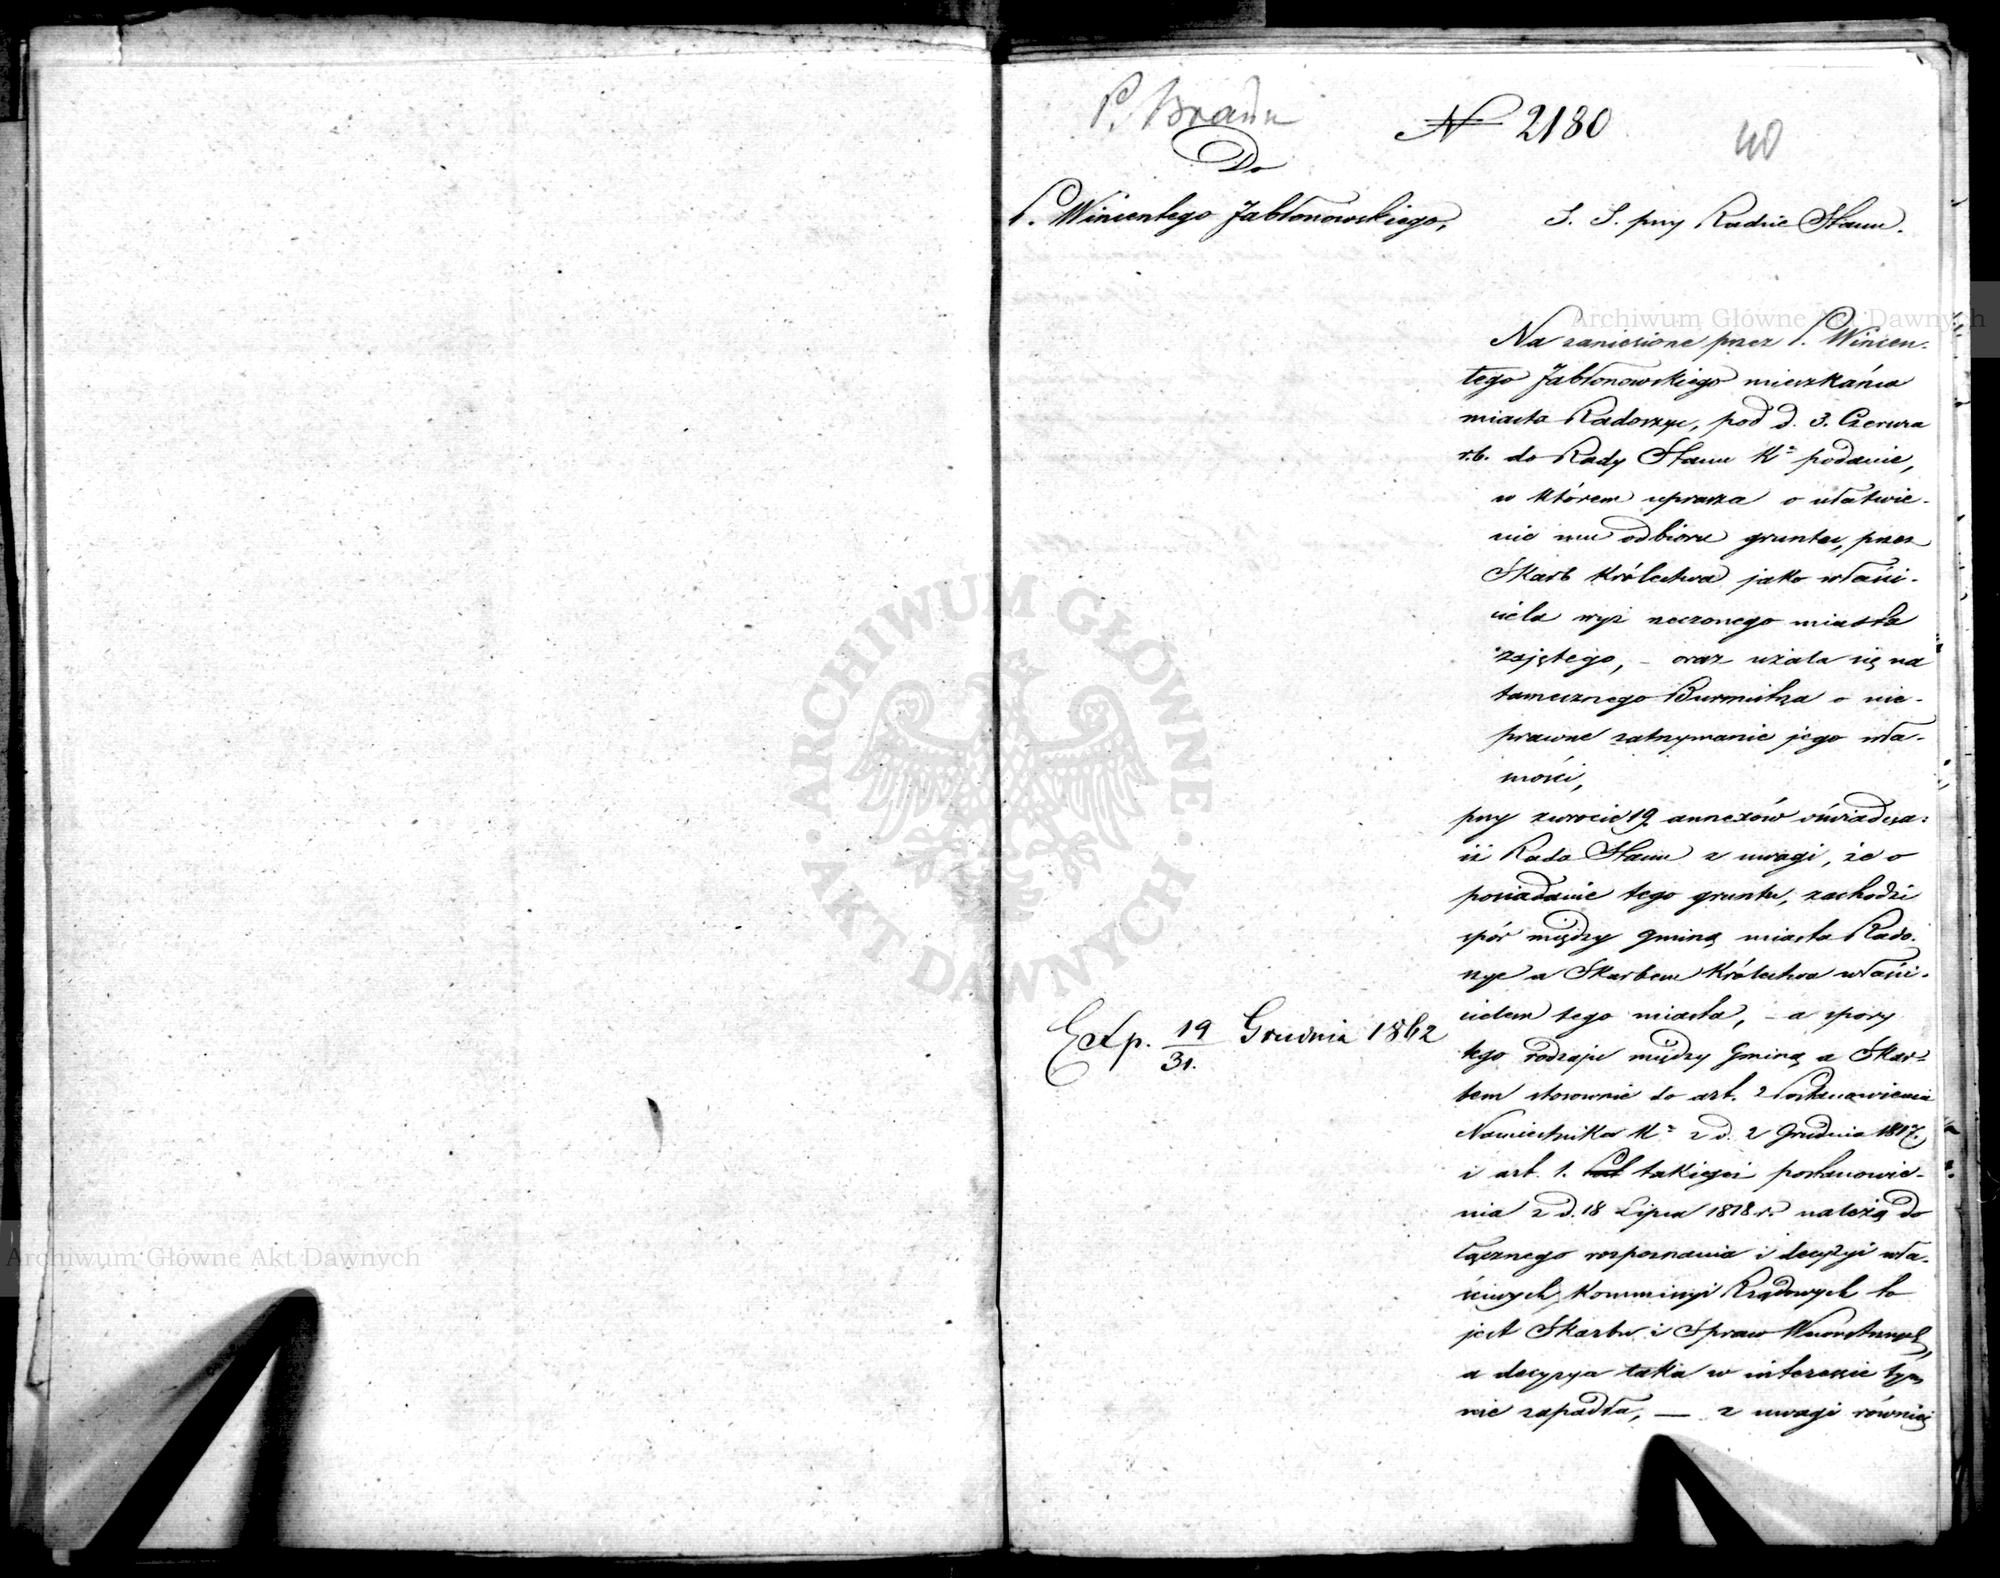 P. Braun
№ 2180
40
Do
P. Wincentego Jabłonowskiego,
S. S. przy Radzie Stanu.
Na zaniesione przez P. Wincen-
tego Jabłonowskiego mieszkańca
miasta Radoszyc, pod d. 3. Czerwca
r.b. do Rady Stanu Kr podanie,
w którem uprasza o ułatwie-
nie mu odbioru gruntu, przez
Skarb Królestwa jako właści-
ciela wyż rzeczonego miasta
zajętego, – oraz użala się na
tamecznego Burmistrza o nie-
prawne zatrzymanie jego wła-
sności,
przy zwrocie 19 annexów oświadcza:
iż Rada Stanu z uwagi, że o
posiadanie tego gruntu, zachodzi
spór między gminą miasta Rado-
szyc a Skarbem Królestwa właści-
cielem tego miasta, – a spory
tego rodzaju między Gminą a Skar-
bem stosownie do art. 2 Postanowienia
Namiestnika Kr z d. 2 Grudnia 1817.
i art. 1. takiegoż postanowie-
nia z d. 18 Lipca 1818 r. należą do
łącznego rozpoznania i decyzyi wła-
ściwych Kommissyi Rządowych to
jest Skarbu i Spraw Wewnętrznych,
a decyzya taka w interesie tym
nie zapadła, — z uwagi również
Exp. 19/31. Grudnia 1862
Archiwum Główne Akt Dawnych
Archiwum Główne Akt Dawnych
ARCHIWUM GŁÓWNE
AKT DAWNYCH